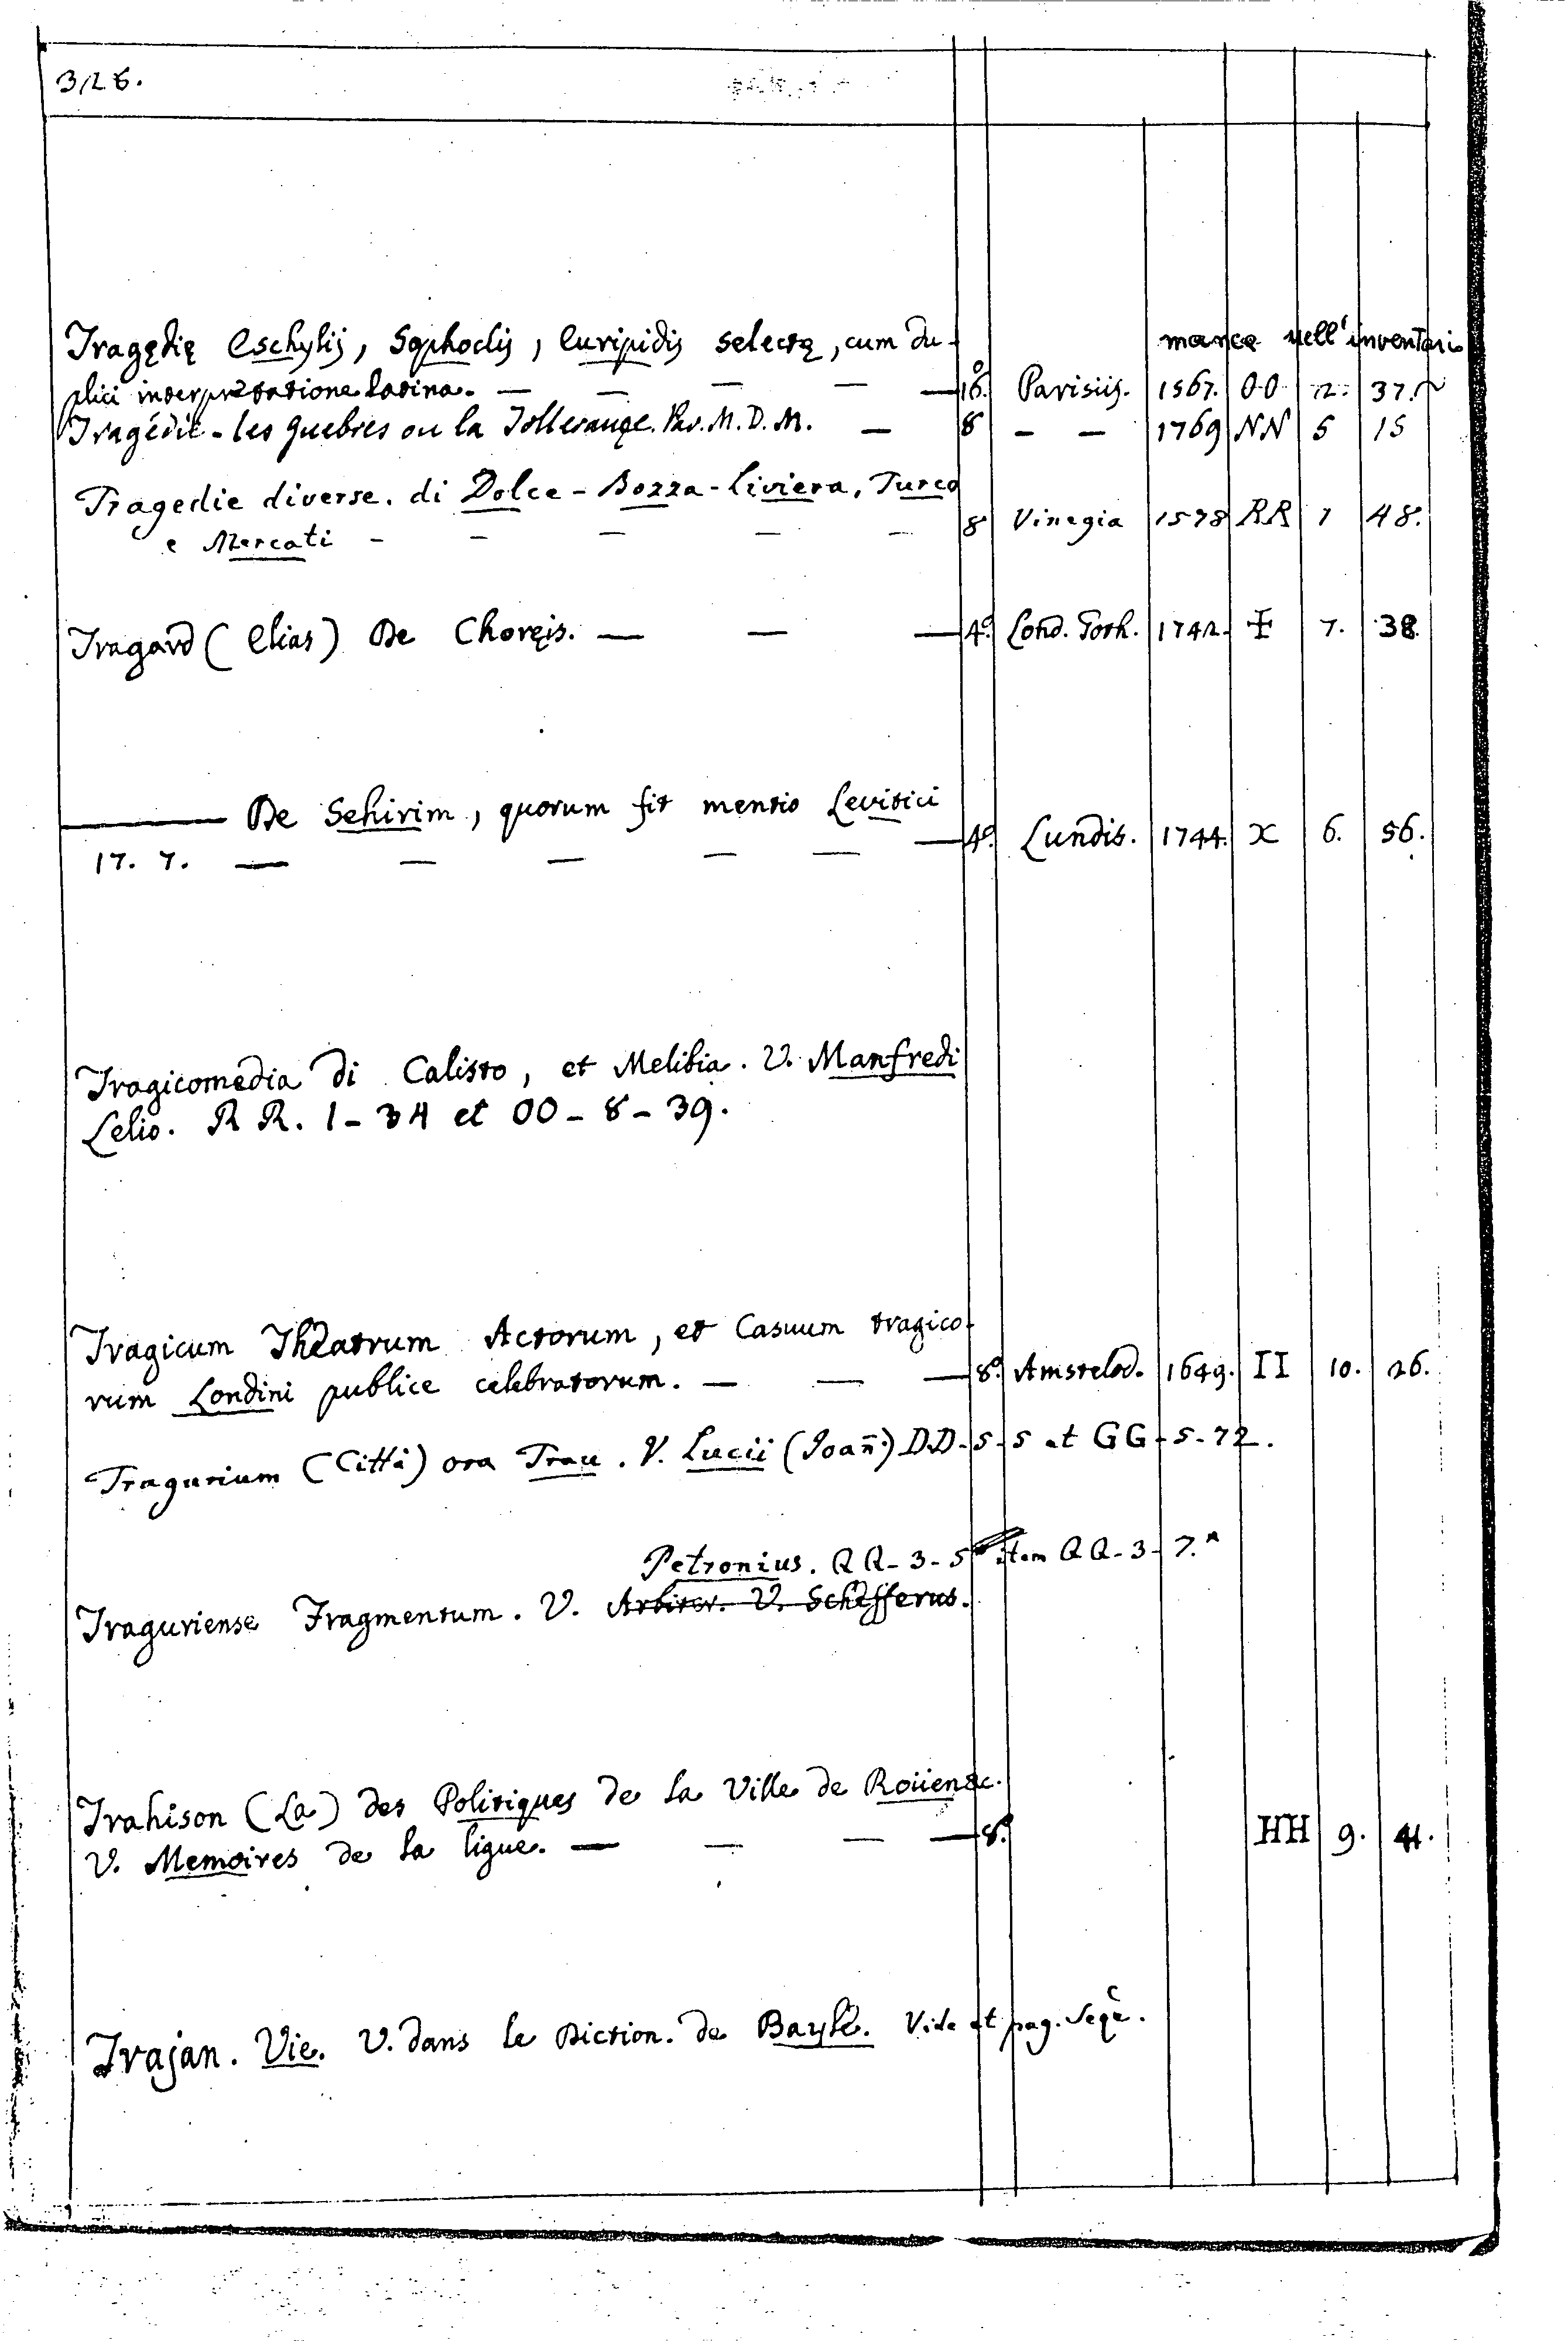 326.
manca nell'inventario
Tragędię Eschylij, Sophoclis, Euripidis selectę, cum du-
plici interpretatione latina. — — — — — 16.° Parisiis. 1567. OO 2. 37.
Tragédie - les Guebres ou la Tollerançe. Par. M. D. M. — 8 — — 1769 NN 5 15
Tragedie diverse. di Dolce - Bozza - Liviera, Turco
e Mercati - - - - - 8 Vinegia 1578 RR 1 48.
Tragard (Elias) De Choręis. — — — 4.° Lond. Goth. 1742. 7. 38.
——— De Sehirim, quorum fit mentio Levitici
17. 7. — — — — — — 4.° Lundis. 1744. X 6. 56.
Tragicomedia di Calisto, et Melibia. V. Manfredi
Lelio. R R. 1 - 34 et OO - 8 - 39.
Tragicum Theatrum Actorum, et Casuum tragico-
rum Londini publice celebratorum. — — — 8.° Amstelod. 1649. II 10. 26.
Tragurium (Città) ora Trau. V. Lucii (Joañ.) DD - 5 - 5 et GG - 5 - 72.
Petronius. QQ - 3 - 5 item QQ - 3 - 7.*
Traguriense Fragmentum. V. Arbiter. V. Schefferus.
Trahison (La) des Politiques de la Ville de Roüen &c.
V. Memoires de la ligue. — — — — 8.° HH 9. 41.
Trajan. Vie. V. dans le Diction. de Bayle. Vide et pag. seqe.